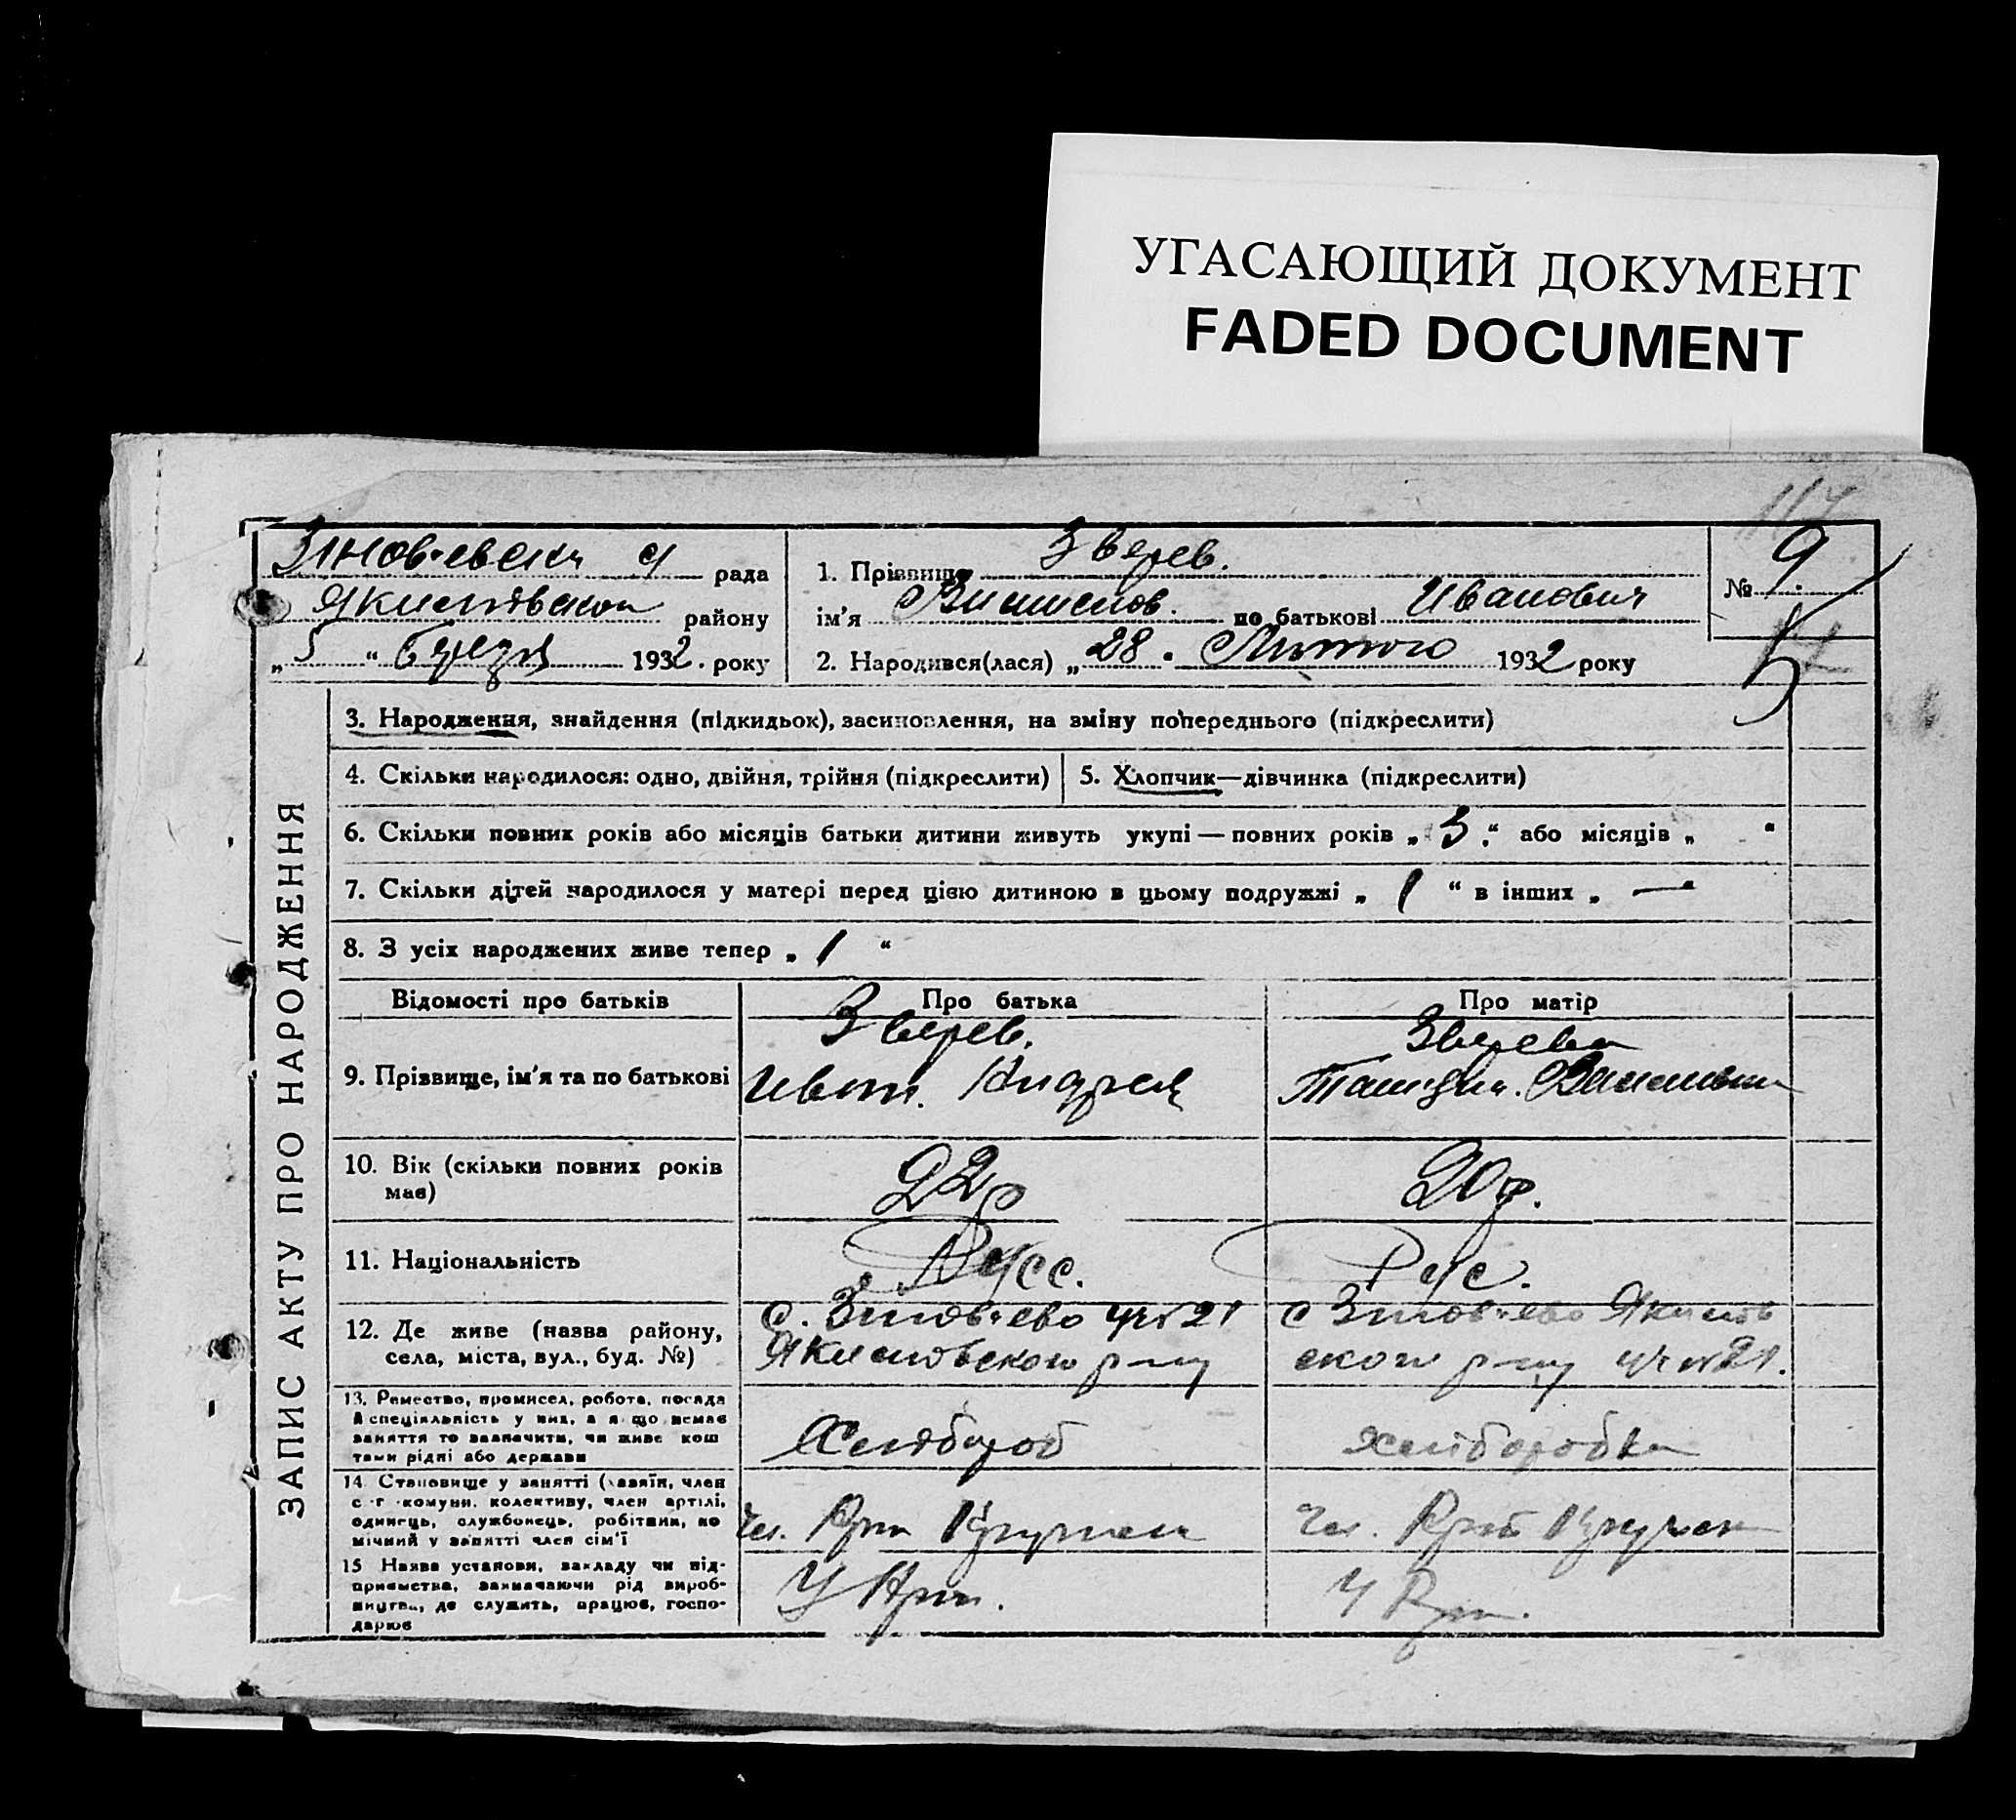 УГАСАЮЩИЙ ДОКУМЕНТ
FADED DOCUMENT
117
рада
району
„ 5 “ березня 1932. року
1. Прізвище Зверев.
ім'я по батькові Иванович
2. Народився(лася) „ 28 “ Лютого 1932 року
№ 9.
ЗАПИС АКТУ ПРО НАРОДЖЕННЯ
3. Народження, знайдення (підкидьок), засиновлення, на зміну попереднього (підкреслити)
4. Скільки народилося: одно, двійня, трійня (підкреслити)
5. Хлопчик—дівчинка (підкреслити)
6. Скільки повних років або місяців батьки дитини живуть укупі — повних років „ 3. “ або місяців „ “
7. Скільки дітей народилося у матері перед цією дитиною в цьому подружжі „ 1 “ в інших „ — “
8. З усіх народжених живе тепер „ 1 “
Відомості про батьків
Про батька
Про матір
9. Прізвище, ім'я та по батькові
Зверев.
Иван. Андрей
Зверева
10. Вік (скільки повних років має)
22 р
20 р.
11. Національність
Русс.
Рус.
12. Де живе (назва району,
села, міста, вул., буд. №)
с. Зинов'ево уч №21
Якимовского р-ну
с Зинов'ево Якимов
ского р-ну уч №21.
13. Ремество, промисел, робота, посада
й спеціяльність у них, а якщо немає
заняття то зазначити, чи живе кош
тами рідні або держави
Хлібороб
хлібороб��а
14. Становище у занятті (хазяїн, член
с.-г. комуни, колективу, член артілі,
одинець, службовець, робітник, по
мічний у занятті член сім'ї
15 Назва установи, закладу чи під-
приємства, зазначаючи рід вироб-
ництва, де служить, працює, госпо-
дарює